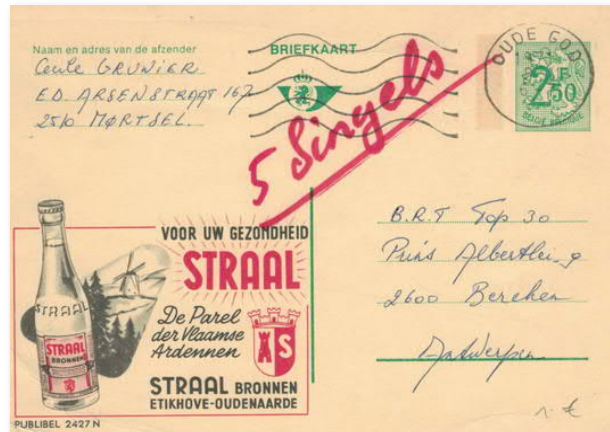 Naam en adres van de afzender
Cecile GRUNIER
ED. ARSENSTRAAT 167
2510 MORTSEL.
BRIEFKAART
OUDE GOD
2F50
BELGIE BELGIQUE
5 Singels
B.R.T Top 30
Prins Albertlei, 9
2600 Berchem
Antwerpen
VOOR UW GEZONDHEID
STRAAL
De Parel
der Vlaamse
Ardennen
STRAAL BRONNEN
ETIKHOVE-OUDENAARDE
STRAAL
STRAAL
BRONNEN
AS
PUBLIBEL 2427 N
1.- €